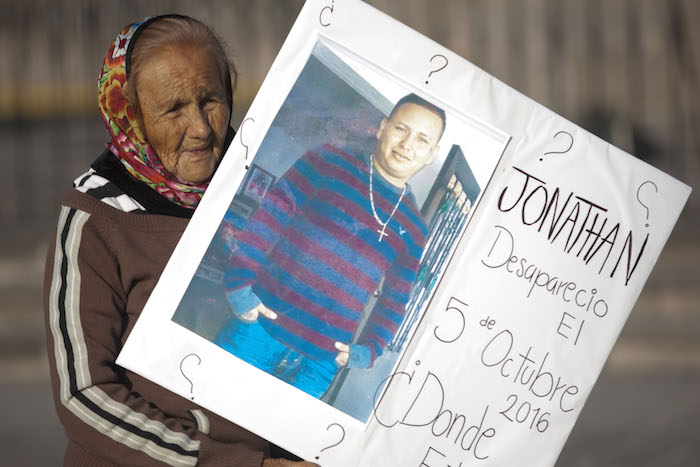 JONATHAN
Desaparecio
El
5 de Octubre
2016
¿Donde